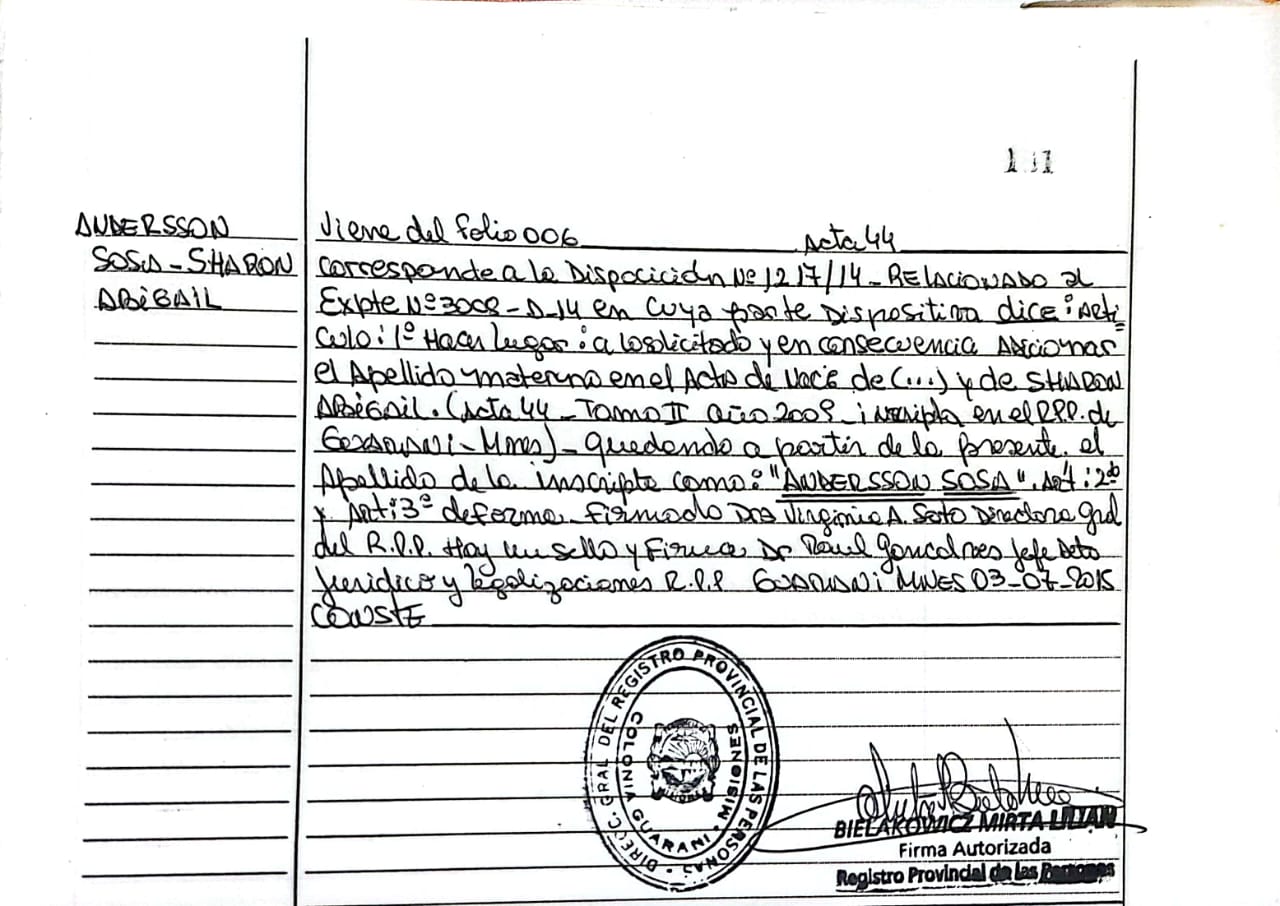 ANDERSSON
SOSA - SHARON
ABIGAIL
Viene del folio 006 Acta 44
corresponde a la Disposición Nº 1217/14 - RELACIONADO al
Expte Nº 3008 - D-14 en cuya parte Dispositiva dice: Arti=
culo: 1º Hacer lugar: a lo solicitado y en consecuencia ADICIONAR
el Apellido materno en el Acta de Nac. de (...) y de SHARON
ABIGAIL. (Acta 44 - Tomo II año 2009 - inscripta en el R.P.P. de
GUARANI - Mnes) - quedando a partir de la presente, el
Apellido de la inscripta como: "ANDERSSON SOSA". Art: 2do
y Art: 3º de forma. Firmado Dra Virginia A. Soto Directora Gral
del R.P.P. Hay un sello y Firma Dr Raul Goncalves Jefe Dto
Juridico y legalizaciones R.P.P GUARANI MNES 03-07-2015
CONSTE
DIREC. GRAL DEL REGISTRO PROVINCIAL DE LAS PERSONAS
COLONIA GUARANI - MISIONES
BIELAKOWICZ MIRTA LILIAN
Firma Autorizada
Registro Provincial de las Personas